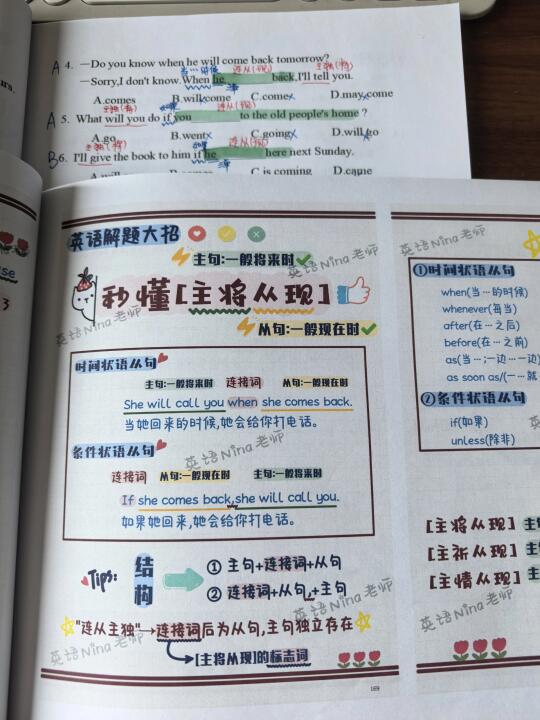 A 4. —Do you know when he will come back tomorrow?
当…时候 连从(现) 主独(将)
—Sorry,I don't know.When he ______ back,I'll tell you.
三单
A.comes B.will come C.come D.may come
主独(将) 如果 连从(现)
A 5. What will you do if you ______ to the old people's home?
A.go B.went C.going D.will go
主独(将) 如果 连从(现)
B 6. I'll give the book to him if he ______ here next Sunday.
三单
C.is coming D.came
英语解题大招
主句:一般将来时
秒懂[主将从现]
从句:一般现在时
时间状语从句
主句:一般将来时 连接词 从句:一般现在时
She will call you when she comes back.
当她回来的时候,她会给你打电话。
条件状语从句
连接词 从句:一般现在时 主句:一般将来时
If she comes back,she will call you.
如果她回来,她会给你打电话。
Tips:
结构
① 主句+连接词+从句
② 连接词+从句,+主句
"连从主独"→连接词后为从句,主句独立存在
[主将从现]的标志词
169
英语Nina老师
英语Nina老师
英语Nina老师
英语Nina老师
英语Nina老师
①时间状语从句
when(当…的时候)
whenever(每当)
after(在…之后)
before(在…之前)
as(当…;一边…一边)
as soon as(一…就
②条件状语从句
if(如果)
unless(除非)
[主将从现] 主
[主祈从现] 主
[主情从现] 主
英语Nina老师
英语Nina老师
英语Nina老师
3